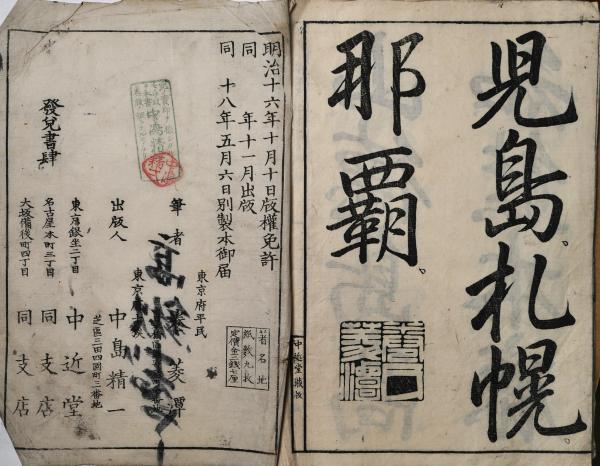 児島札幌
那覇
中近堂蔵板
明治十六年十月十日版權免許
同 年十一月出版
同 十八年五月六日別製本御届
著名地
紙數九枚
定價金三錢七厘
東京府平民
筆者
菱潭
東京府
出版人
中島精一
芝區三田四國町二番地
發兌書肆
東京銀坐二丁目
中近堂
名古屋本町三丁目
同支店
大坂備後町四丁目
同支店